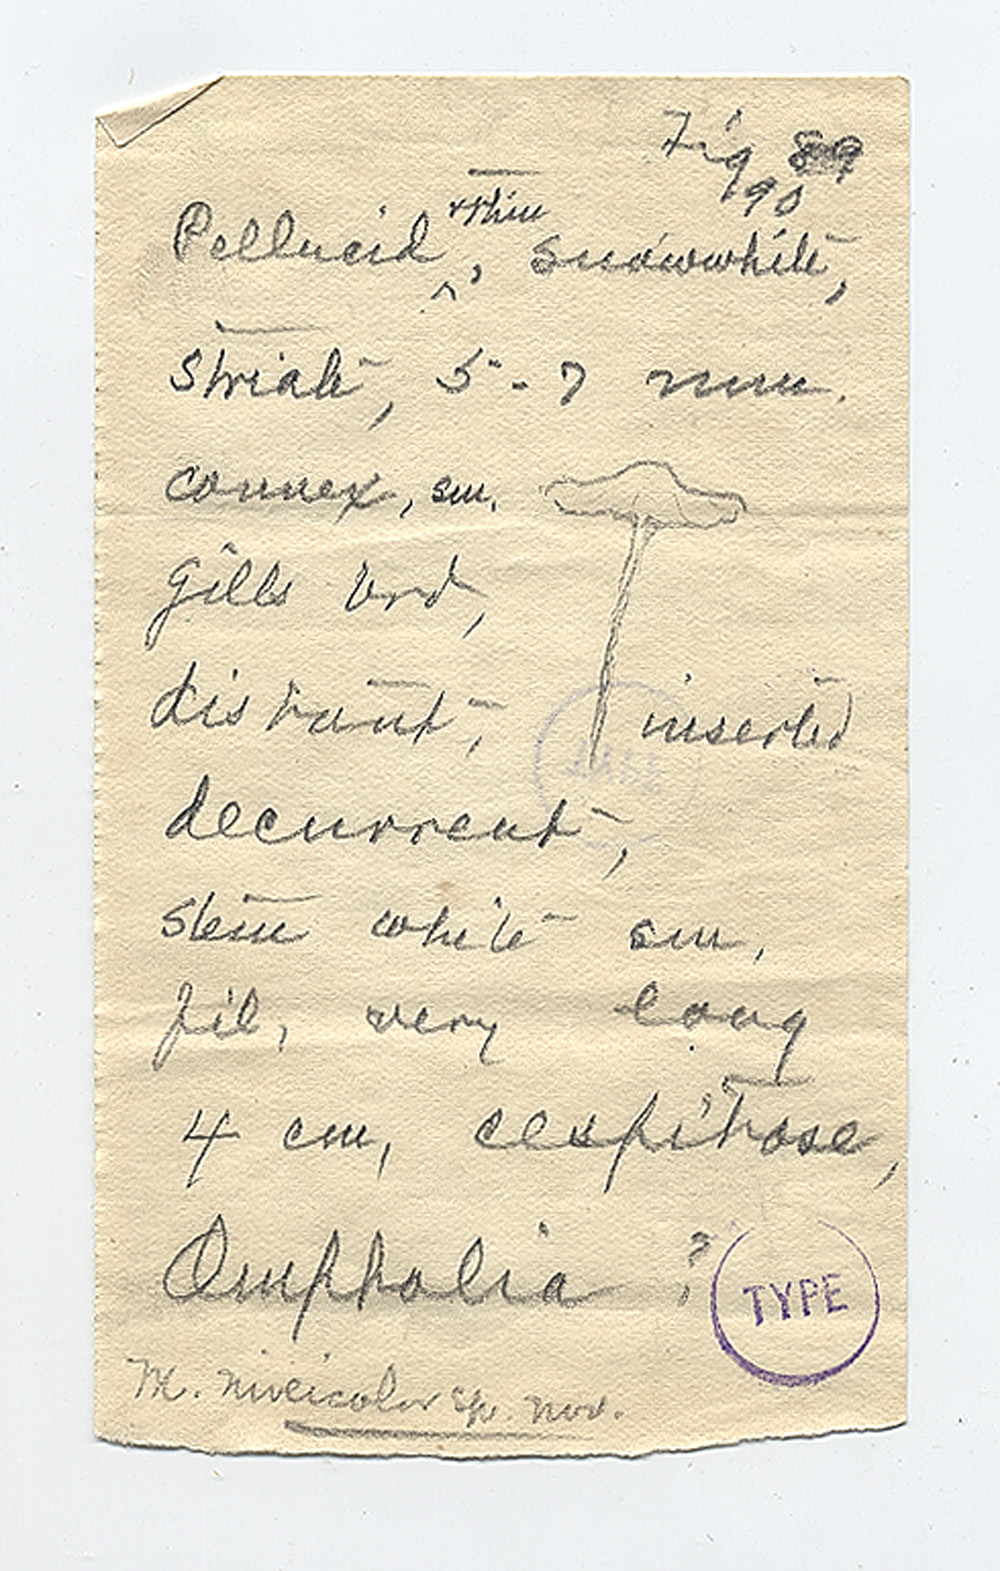 Fig 89
90
Pellucid ^ + thin, snowwhite,
striate, 5-7 mm.
convex, sm.
Gills brd,
distant, inserted
decurrent,
stem white sm,
fil, very long
4 cm, cespitose,
Omphalia ?
TYPE
M. niveicolor sp. nov.